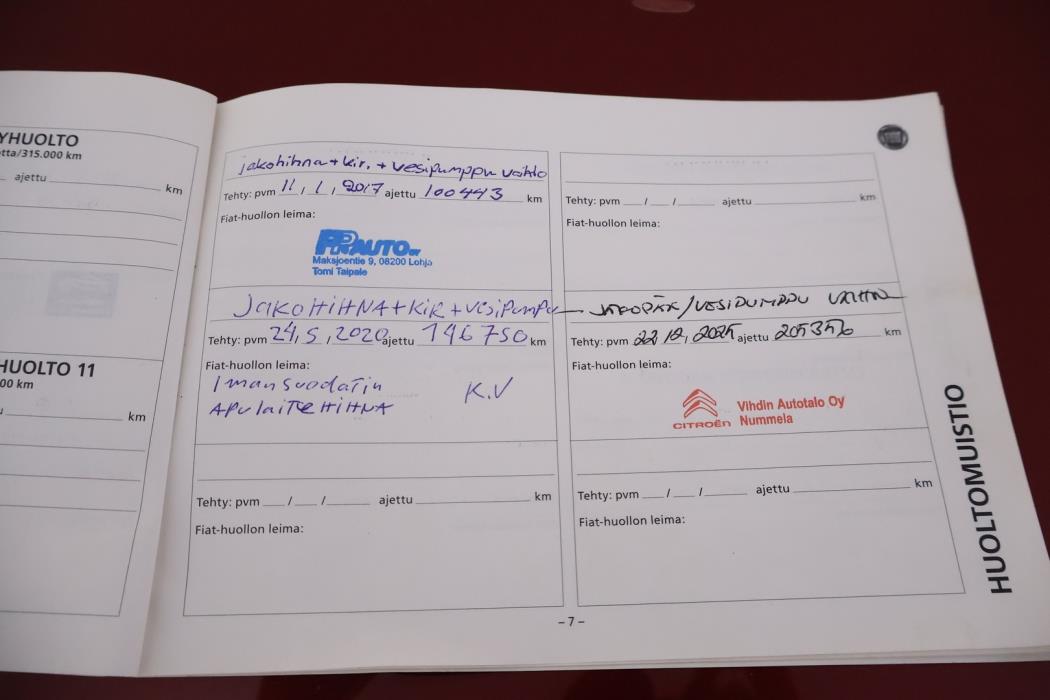 YHUOLTO
tta/315.000 km
ajettu km
HUOLTO 11
00 km
km
jakohihna + kir. + vesipumppu vaihto
Tehty: pvm 11 / 1 / 2017 ajettu 100443 km
Fiat-huollon leima:
PRAUTO OY
Maksjoentie 9, 08200 Lohja
Tomi Taipale
JAKOHIHNA + KIR + vesipumpu
Tehty: pvm 24, 5, 2020 ajettu 146750 km
Fiat-huollon leima:
Imansuodatin K.V
APULAITEHIHNA
Tehty: pvm / / ajettu km
Fiat-huollon leima:
Tehty: pvm / / ajettu km
Fiat-huollon leima:
JAKOPÄÄ/VESIPUMPPU VAIHTO
Tehty: pvm 22, 12, 2025 ajettu km
Fiat-huollon leima:
CITROËN Vihdin Autotalo Oy
Nummela
Tehty: pvm / / ajettu km
Fiat-huollon leima:
HUOLTOMUISTIO
- 7 -